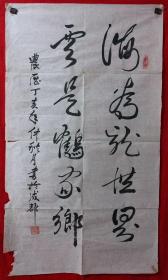 海為龍世界
雲是鶴家鄉
農歷丁亥年仲秋月書於成都